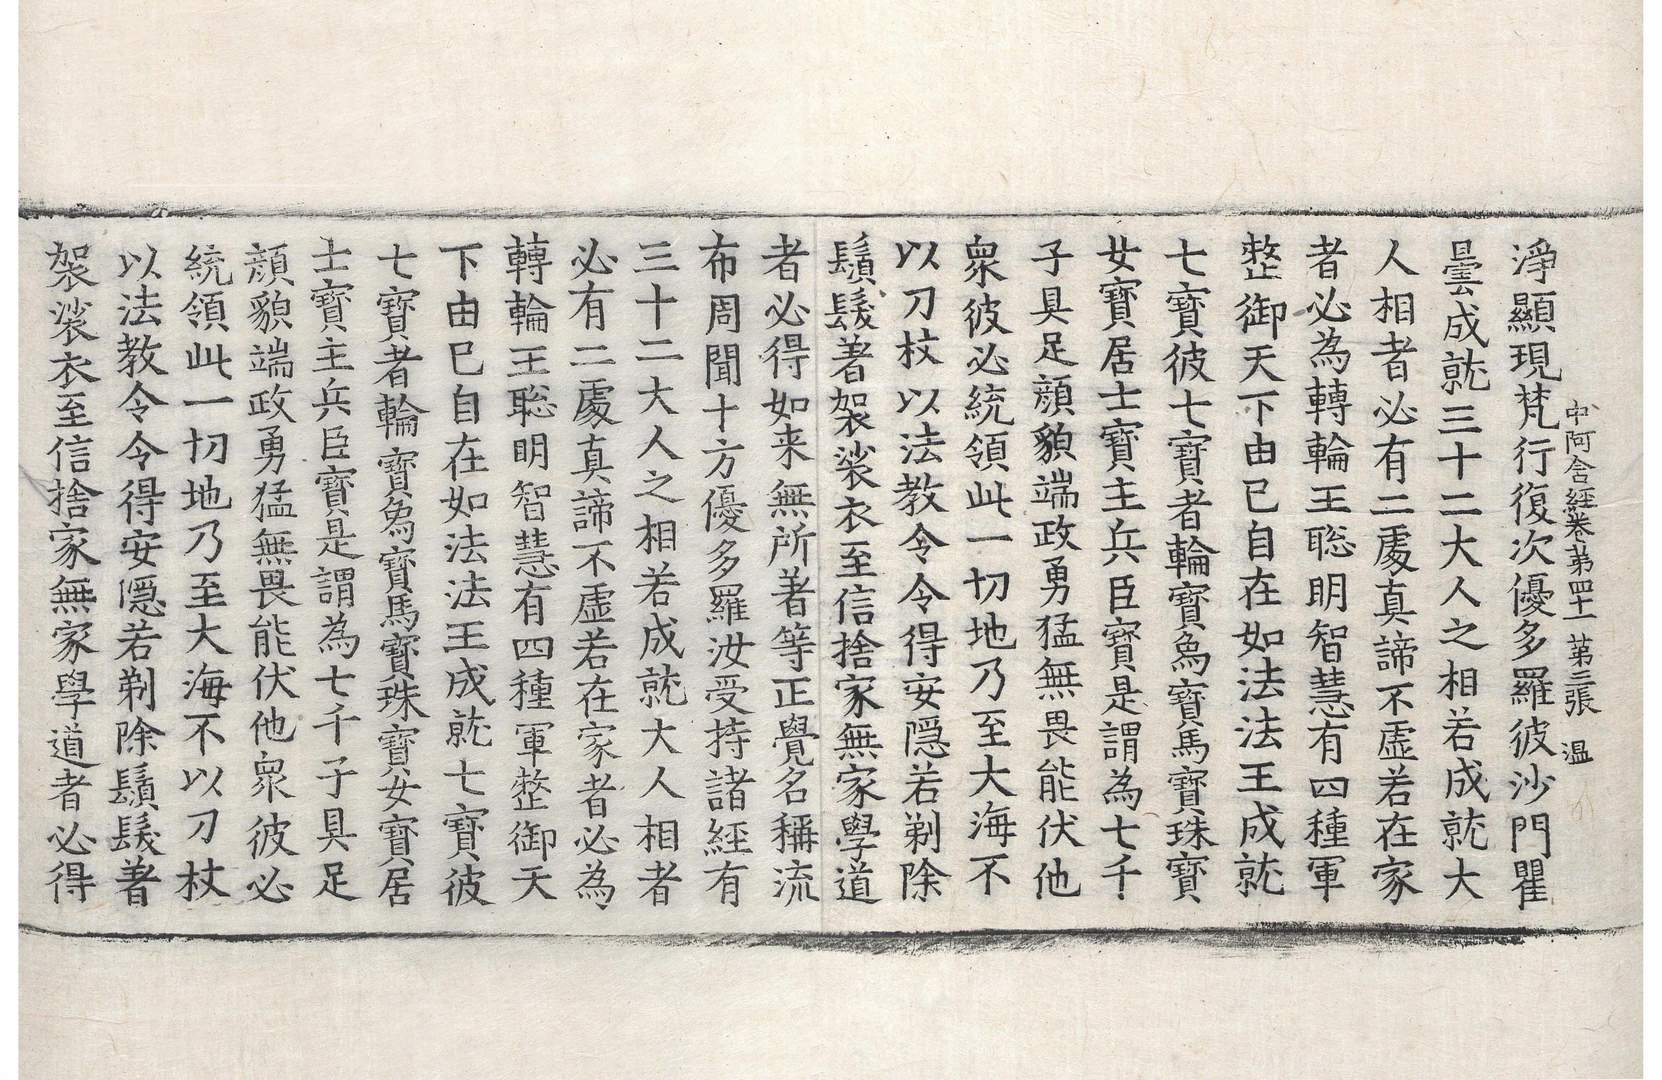 中阿含經卷第四十一　第三張　温
淨顯現梵行復次優多羅彼沙門瞿
曇成就三十二大人之相若成就大
人相者必有二處真諦不虛若在家
者必為轉輪王聡明智慧有四種軍
整御天下由已自在如法法王成就
七寶彼七寶者輪寶象寶馬寶珠寶
女寶居士寶主兵臣寶是謂為七千
子具足顔貌端政勇猛無畏能伏他
衆彼必統領此一切地乃至大海不
以刀杖以法教令令得安隠若剃除
鬚髮著袈裟衣至信捨家無家學道
者必得如来無所著等正覺名稱流
布周聞十方優多羅汝受持諸經有
三十二大人之相若成就大人相者
必有二處真諦不虛若在家者必為
轉輪王聡明智慧有四種軍整御天
下由已自在如法法王成就七寶彼
七寶者輪寶象寶馬寶珠寶女寶居
士寶主兵臣寶是謂為七千子具足
顔貌端政勇猛無畏能伏他衆彼必
統領此一切地乃至大海不以刀杖
以法教令令得安隠若剃除鬚髮著
袈裟衣至信捨家無家學道者必得